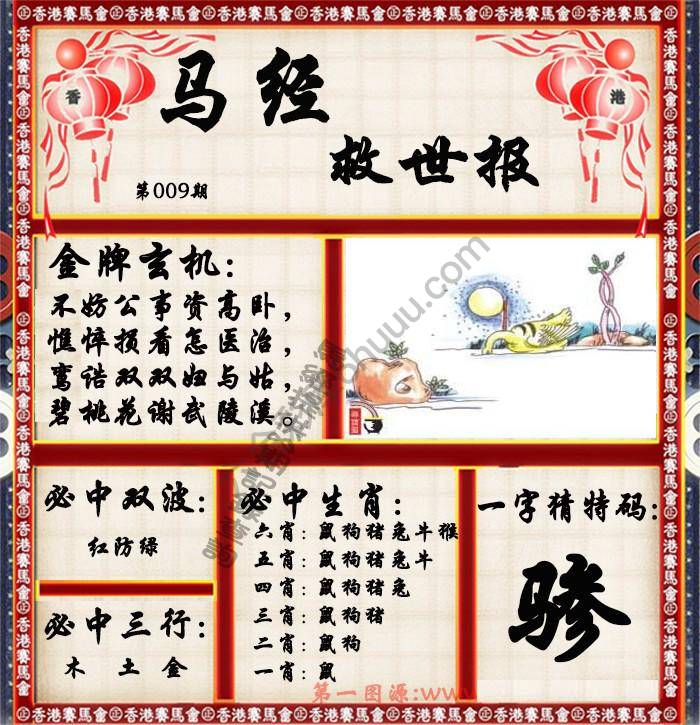 香港賽馬會
香 港
马经
救世报
第009期
金牌玄机:
不妨公事资高卧,
憔悴损看怎医治,
鸾诰双双妇与姑,
碧桃花谢武陵溪。
必中双波:
红防绿
必中三行:
木 土 金
必中生肖:
六肖:鼠狗猪兔牛猴
五肖:鼠狗猪兔牛
四肖:鼠狗猪兔
三肖:鼠狗猪
二肖:鼠狗
一肖:鼠
一字猜特码:
骖
第一图源:www